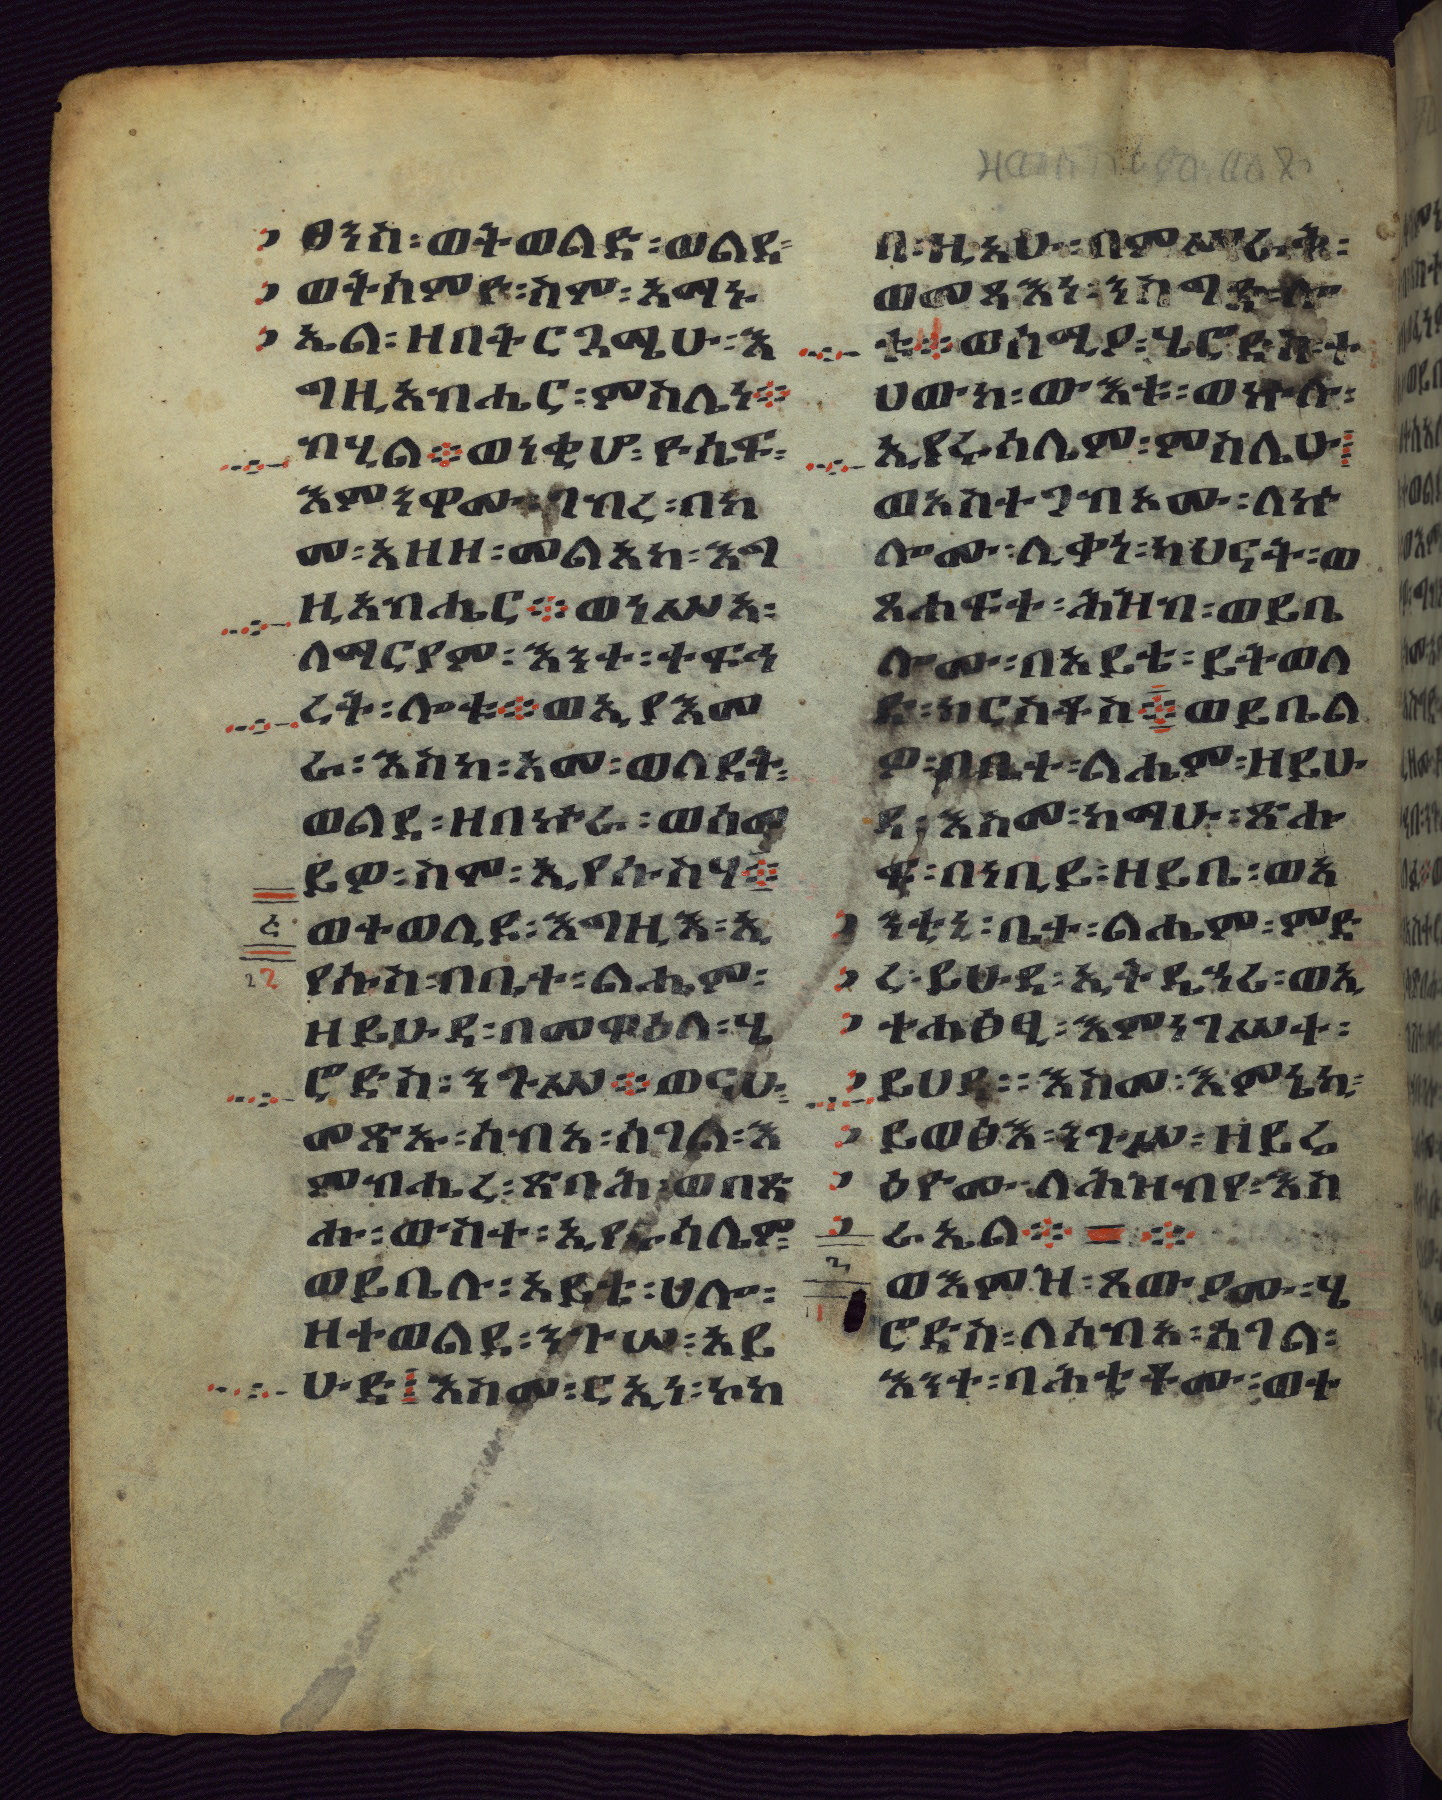 ፀንስ፡ወትወልድ፡ወልደ፡
ወትሰምዮ፡ስም፡አማኑ
ኤል፡ዘበትርጓሜሁ፡እ
ግዚአብሔር፡ምስሌነ፨
ብሂል፨ወነቂሆ፡ዮሴፍ፡
እምንዋሙ፡ገብረ፡በከ
መ፡አዘዘ፡መልአከ፡እግ
ዚአብሔር፨ወነሥአ፡
ለማርያም፡እንተ፡ተፍኅ
ረት፡ሎቱ፨ወኢያእመ
ራ፡እስከ፡አመ፡ወለደት፡
ወልደ፡ዘበኵራ፡ወሰመ
ይዎ፡ስም፡ኢየሱስሃ፨
ወተወሊዶ፡እግዚእ፡ኢ
የሱስ፡በቤተ፡ልሔም፡
ዘይሁዳ፡በመዋዕለ፡ሄ
ሮድስ፡ንጉሥ፨ወናሁ፡
መጽኡ፡ሰብአ፡ሰገል፡እ
ምብሔረ፡ጽባሕ፡ወበጽ
ሑ፡ውስተ፡ኢየሩሳሌም፡
ወይቤሉ፡አይቴ፡ሀሎ፡
ዘተወልደ፡ንጉሠ፡አይ
ሁድ፤እስመ፡ርኢነ፡ኮከ
በ፡ዚአሁ፡በምሥራቅ፡
ወመጻእነ፡ንስግድ፡ሎ
ቱ፨ወሰሚዖ፡ሄሮድስ፡ተ
ሀውከ፡ውእቱ፡ወኵሉ፡
ኢየሩሳሌም፡ምስሌሁ፤
ወአስተጋብአሙ፡ለኵ
ሎሙ፡ሊቃነ፡ካህናት፡ወ
ጸሐፍተ፡ሕዝብ፡ወይቤ
ሎሙ፡በአይቴ፡ይትወለ
ድ፡ክርስቶስ፨ወይቤል
ዎ፡በቤተ፡ልሔም፡ዘይሁ
ዳ፡እስመ፡ከማሁ፡ጽሑ
ፍ፡በነቢይ፡ዘይቤ፡ወአ
ንቲኒ፡ቤተ፡ልሔም፡ምድ
ረ፡ይሁዳ፡ኢትዴኅሪ፡ወኢ
ተሐፅፂ፡እምነገሥተ፡
ይሁዳ፡፡እስመ፡እምኔኪ፡
ይወፅእ፡ንጉሥ፡ዘይሬ
ዕዮሙ፡ለሕዝብየ፡እስ
ራኤል፨
ወእምዝ፡ጸውዖሙ፡ሄ
ሮድስ፡ለሰብአ፡ሰገል፡
እንተ፡ባሕቲቶሙ፡ወተ